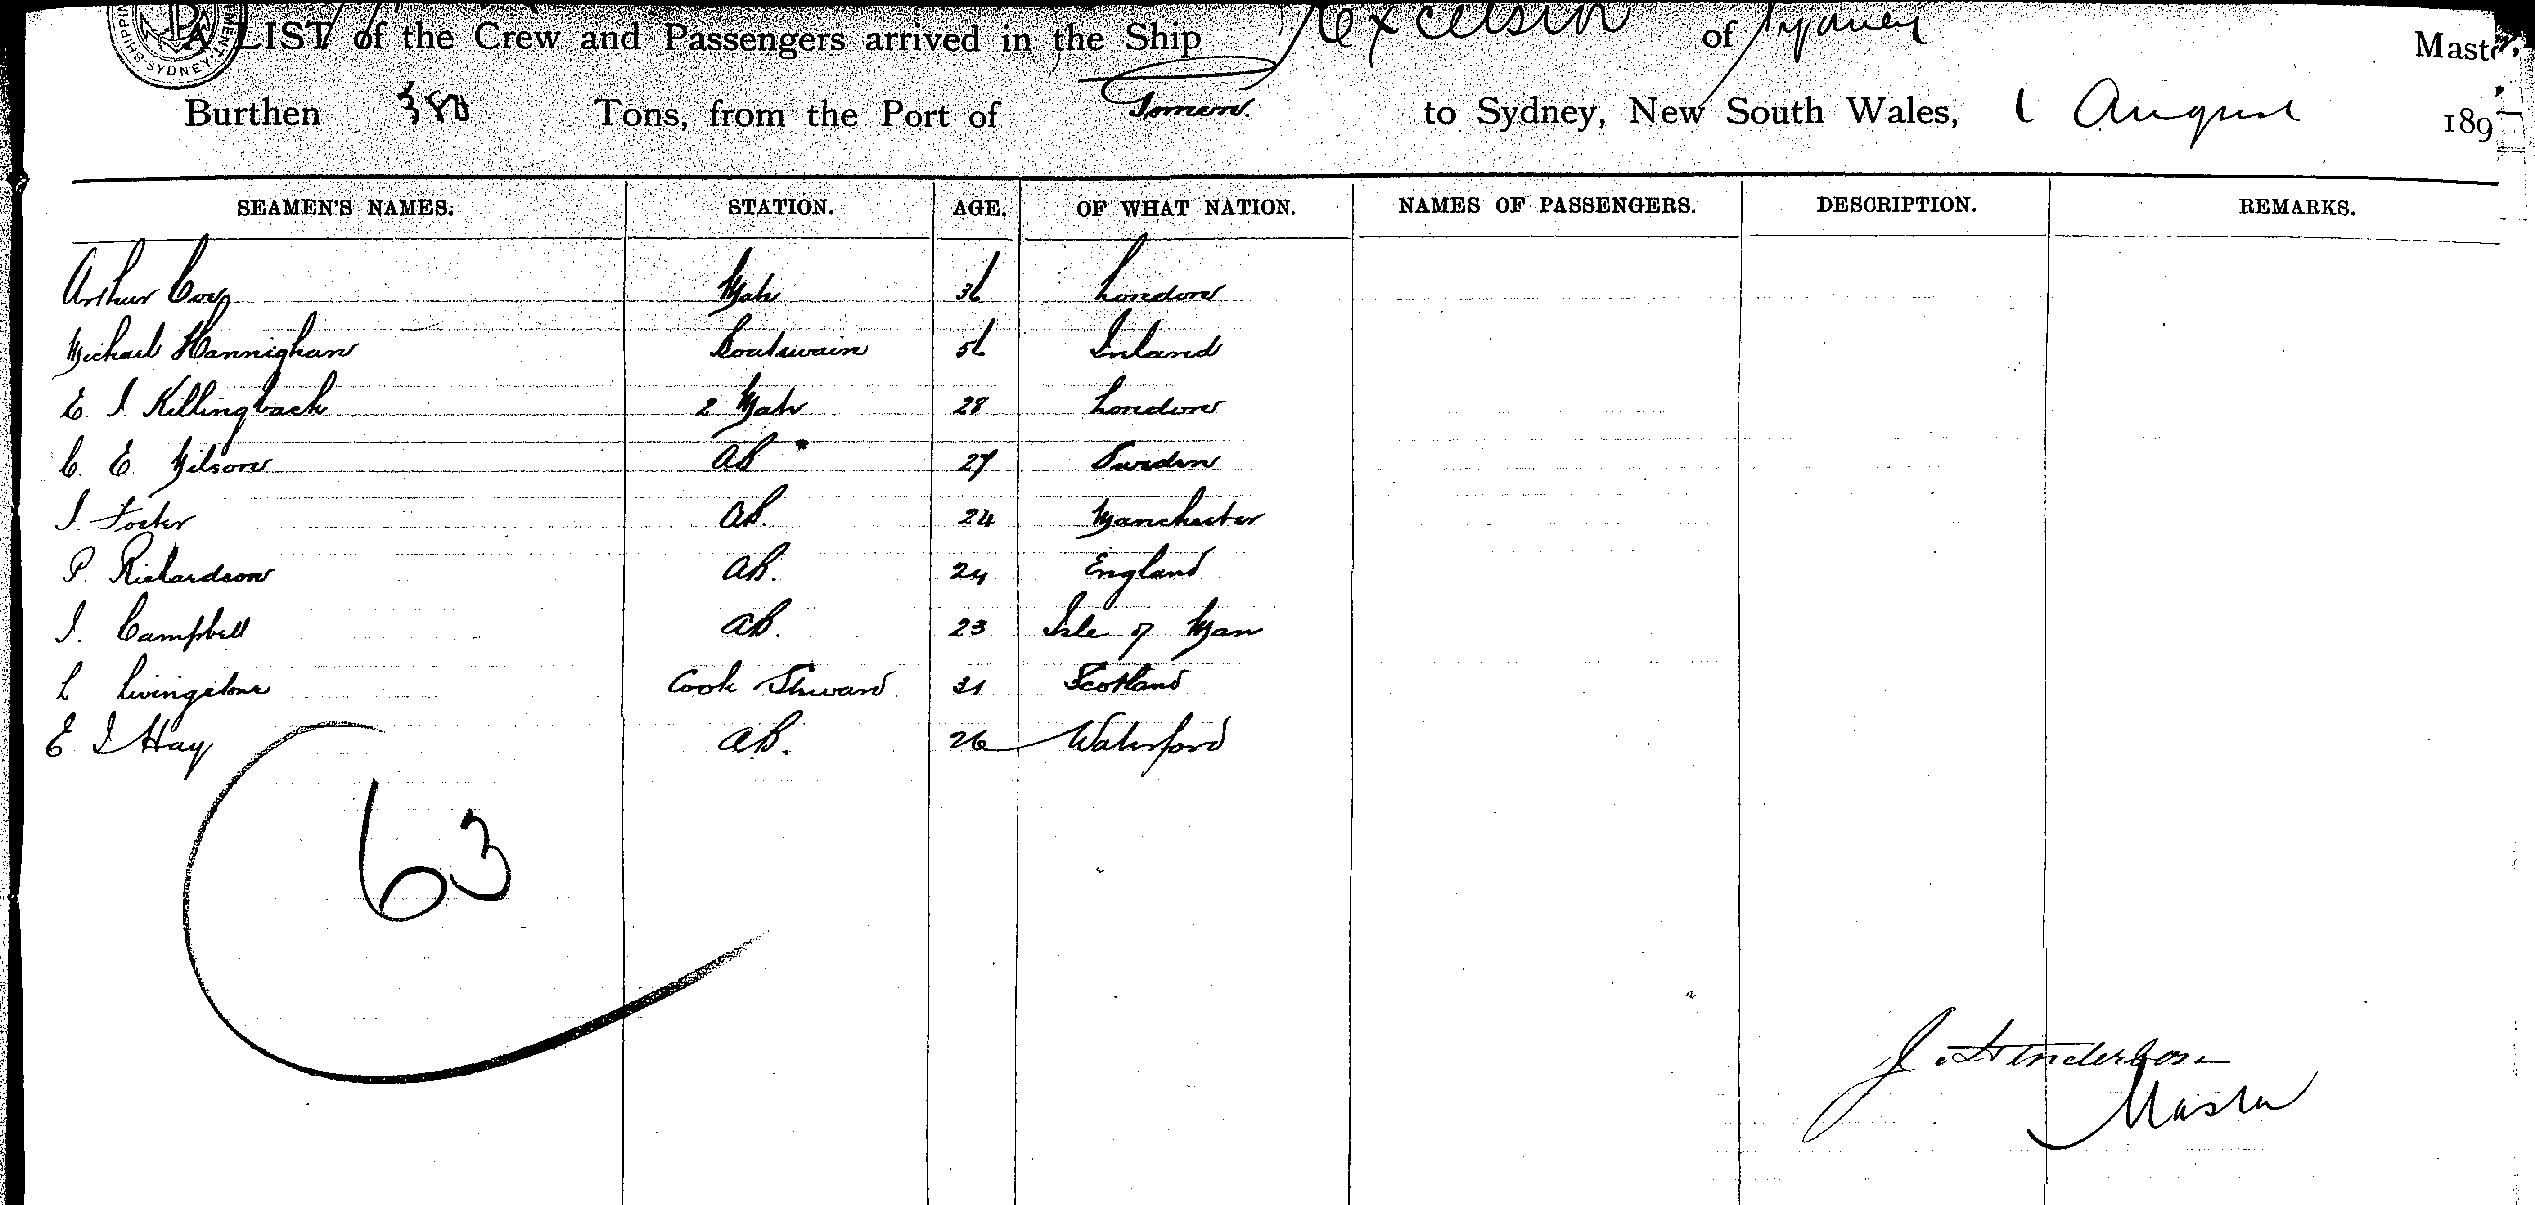 SHIPPING SYDNEY
A LIST of the Crew and Passengers arrived in the Ship Excelsior of Sydney Master,
Burthen 380 Tons, from the Port of to Sydney, New South Wales, 1 August 189
SEAMEN'S NAMES. STATION. AGE. OF WHAT NATION. NAMES OF PASSENGERS. DESCRIPTION. REMARKS.
Arthur Mate 36 London
Michael Hannighan Boatswain 56 Ireland
E J Killingback 2 Mate 28 London
C. E. Nilson AB 27 Sweden
J. Foster AB. 24 Manchester
P. Richardson AB. 24 England
J. Campbell AB. 23 Isle of Man
L Livingstone Cook Steward 31 Scotland
E J Hay AB. 26 Waterford
63
J. Henderson
Master